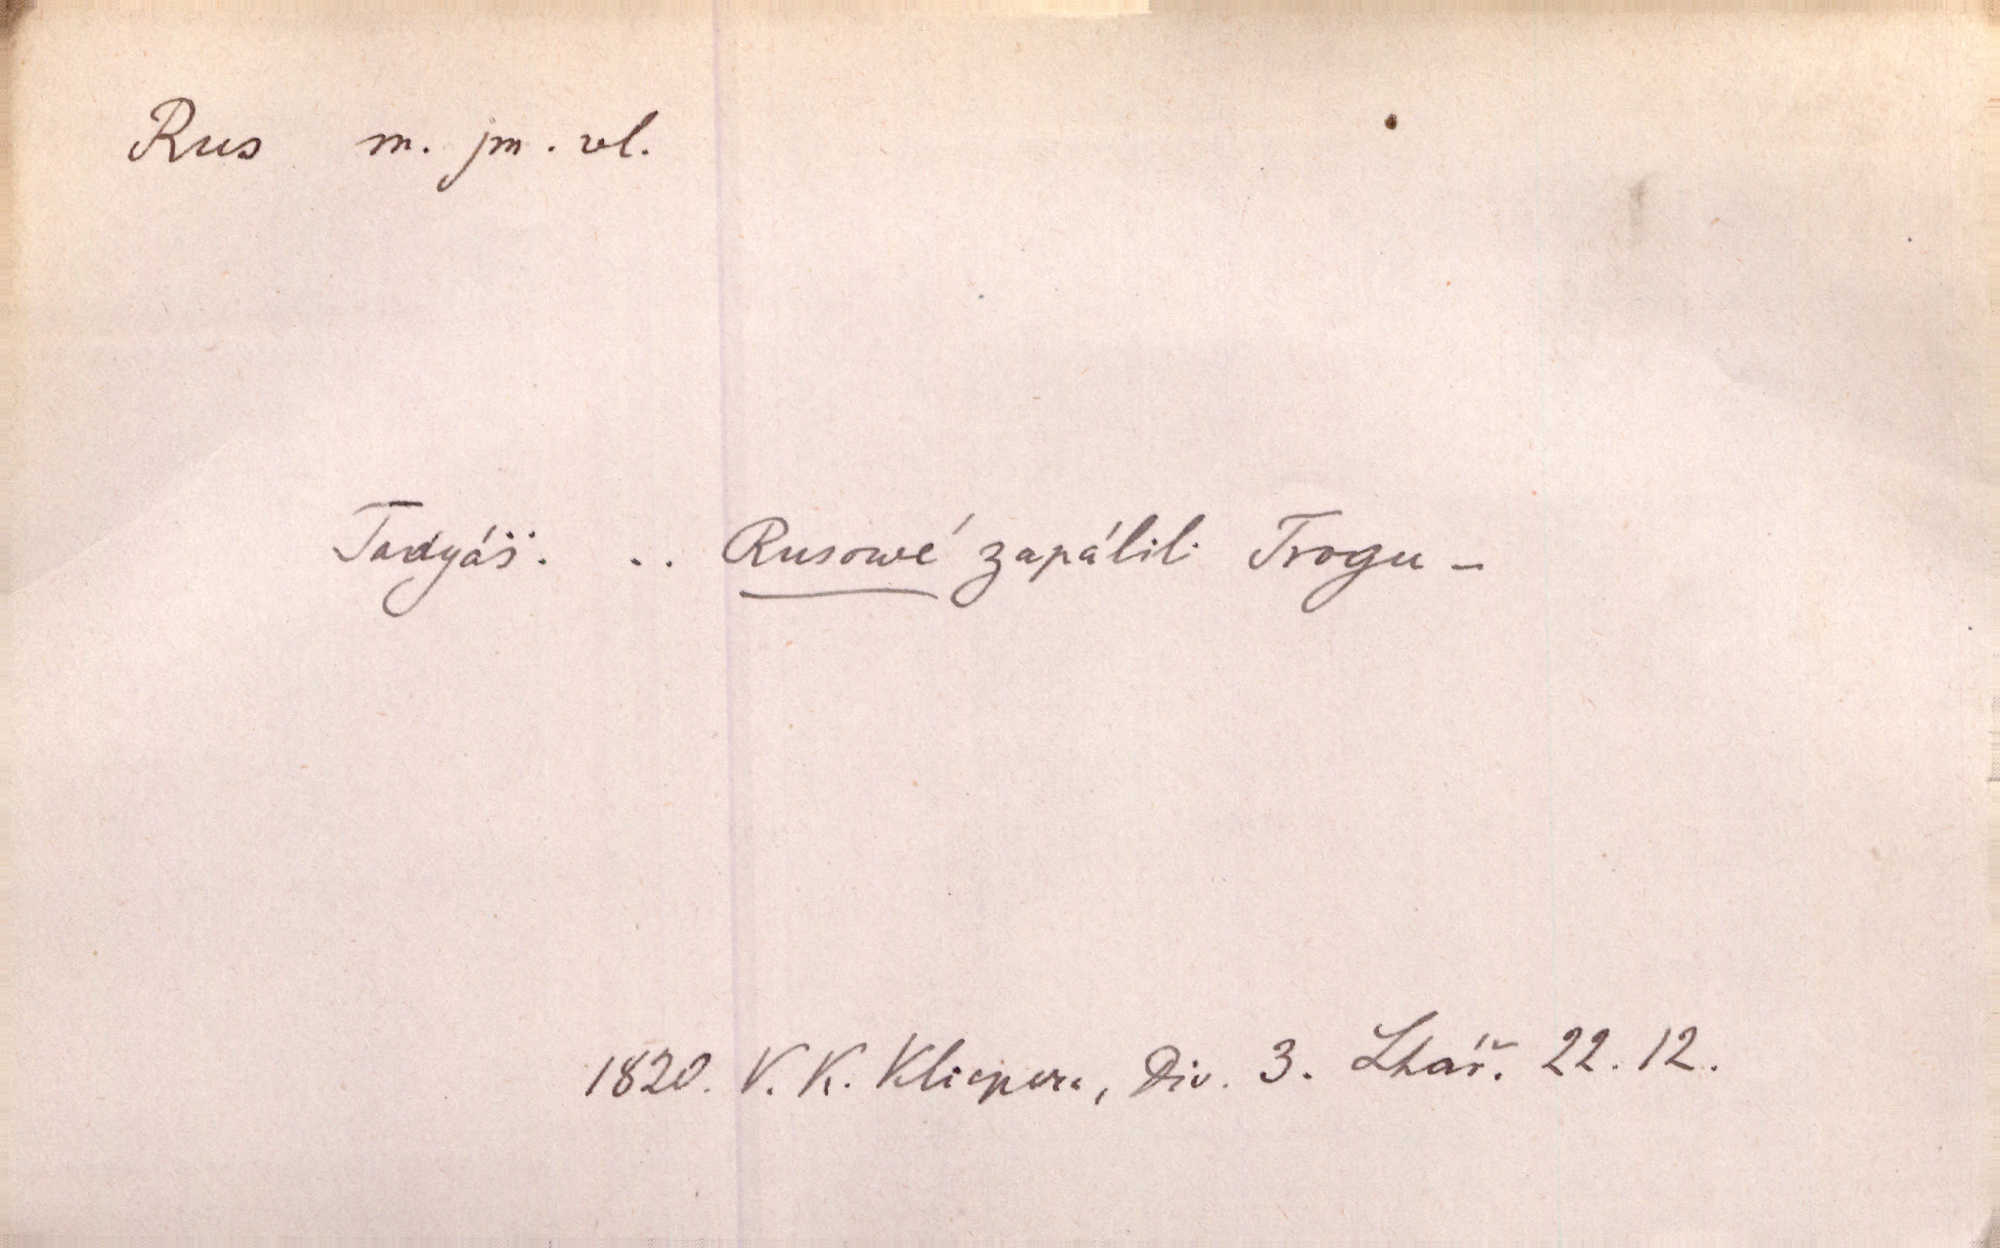 Rus m. jm. vl.
Tadyáš. .. Rusowé zapálili Trogu –
1820. V. K. Klicpera, Div. 3. Lhář. 22. 12.